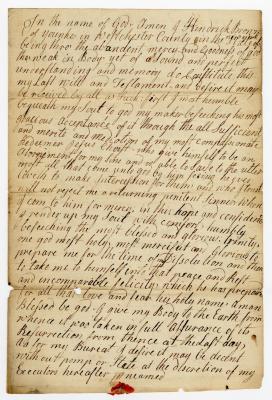 In the name of God Amen I Hendrick Brown
of in Westchester County in the
being thro the abundant mercy and Goodness of god
tho weak in Body yet of a Sound and perfect
understanding and memory do Constitute this
my Last Will and Testament and desire it may
be received by all as such first I most humble
bequeath my Soul to god my maker beseeching his most
gracious acceptance of it through the all Sufficient
and merits and of my most compassionate
Redeemer Jesus Christ who gave himself to be an
atonement for my Sins and is able to Save to the utter
most all that come unto god by him seeing he ever
Liveth to make Intercession for them and who I trust
will not reject me a returning penitent Sinner when
I come to him for mercy in this hope and confidence
I render up my Soul with comfort humbly
beseeching the most blessed and glorious trinity
one god most holy most mercifull and gracious to
prepare me for the time of my Desolution and then
to take to himself into that peace and Rest
and incomparable felicity which he has prepared
for all that Love and fear his holy name amen
blessed be god I give my Body to the Earth from
whence it was taken in full assurance of its
Resurrection from thence at the last day
As for my Burial I desire it may be decent
without pomp or State at the discretion of my
Executors hereafter named